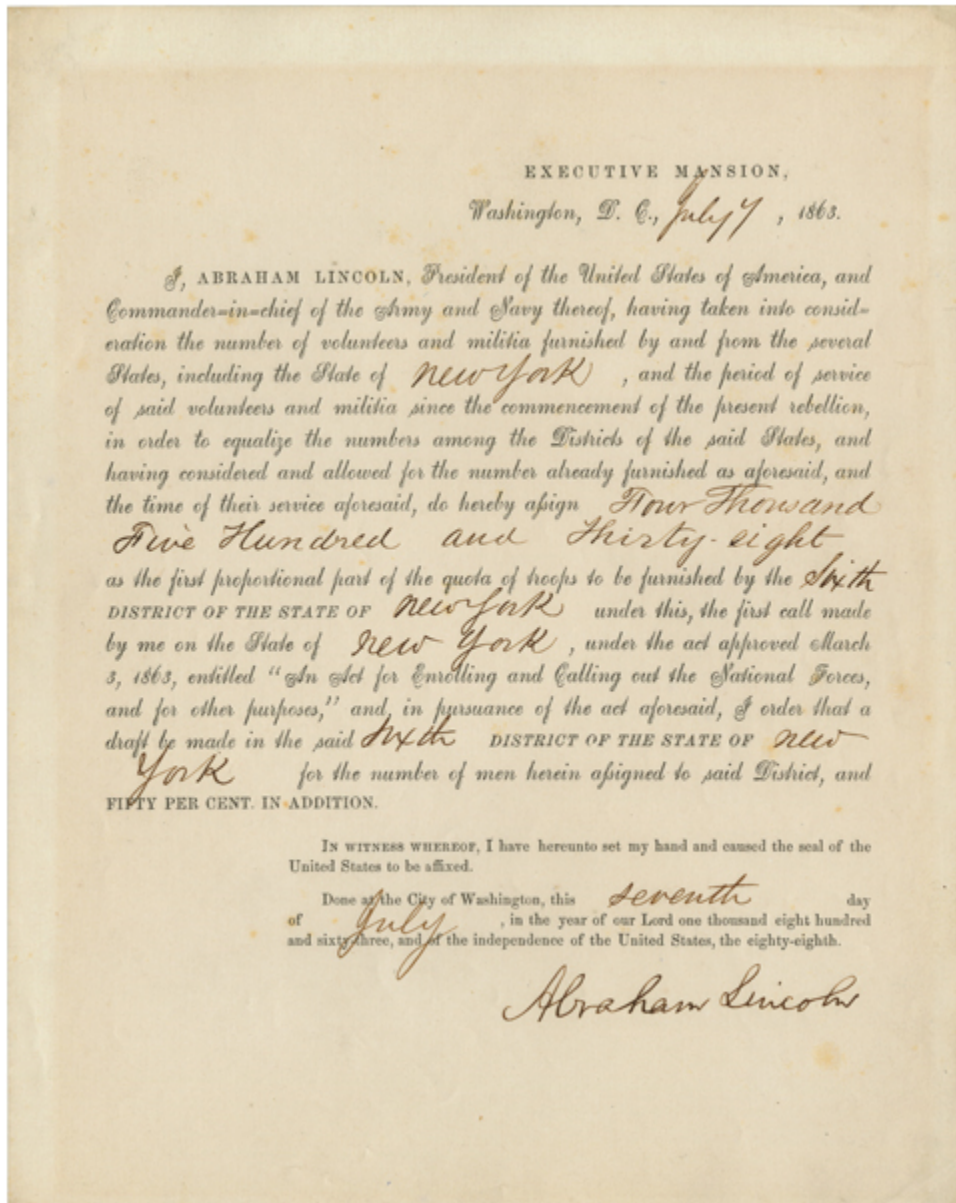 EXECUTIVE MANSION,
Washington, D. C., July 7, 1863.
I, ABRAHAM LINCOLN, President of the United States of America, and
Commander-in-chief of the Army and Navy thereof, having taken into consid-
eration the number of volunteers and militia furnished by and from the several
States, including the State of New York, and the period of service
of said volunteers and militia since the commencement of the present rebellion,
in order to equalize the numbers among the Districts of the said States, and
having considered and allowed for the number already furnished as aforesaid, and
the time of their service aforesaid, do hereby aſsign Four Thousand
Five Hundred and Thirty-eight
as the first proportional part of the quota of troops to be furnished by the Sixth
DISTRICT OF THE STATE OF New York under this, the first call made
by me on the State of New York, under the act approved March
3, 1863, entitled "An Act for Enrolling and Calling out the National Forces,
and for other purposes," and, in pursuance of the act aforesaid, I order that a
draft be made in the said Sixth DISTRICT OF THE STATE OF New
York for the number of men herein aſsigned to said District, and
FIFTY PER CENT. IN ADDITION.
IN WITNESS WHEREOF, I have hereunto set my hand and caused the seal of the
United States to be affixed.
Done at the City of Washington, this seventh day
of July, in the year of our Lord one thousand eight hundred
and sixty-three, and of the independence of the United States, the eighty-eighth.
Abraham Lincoln